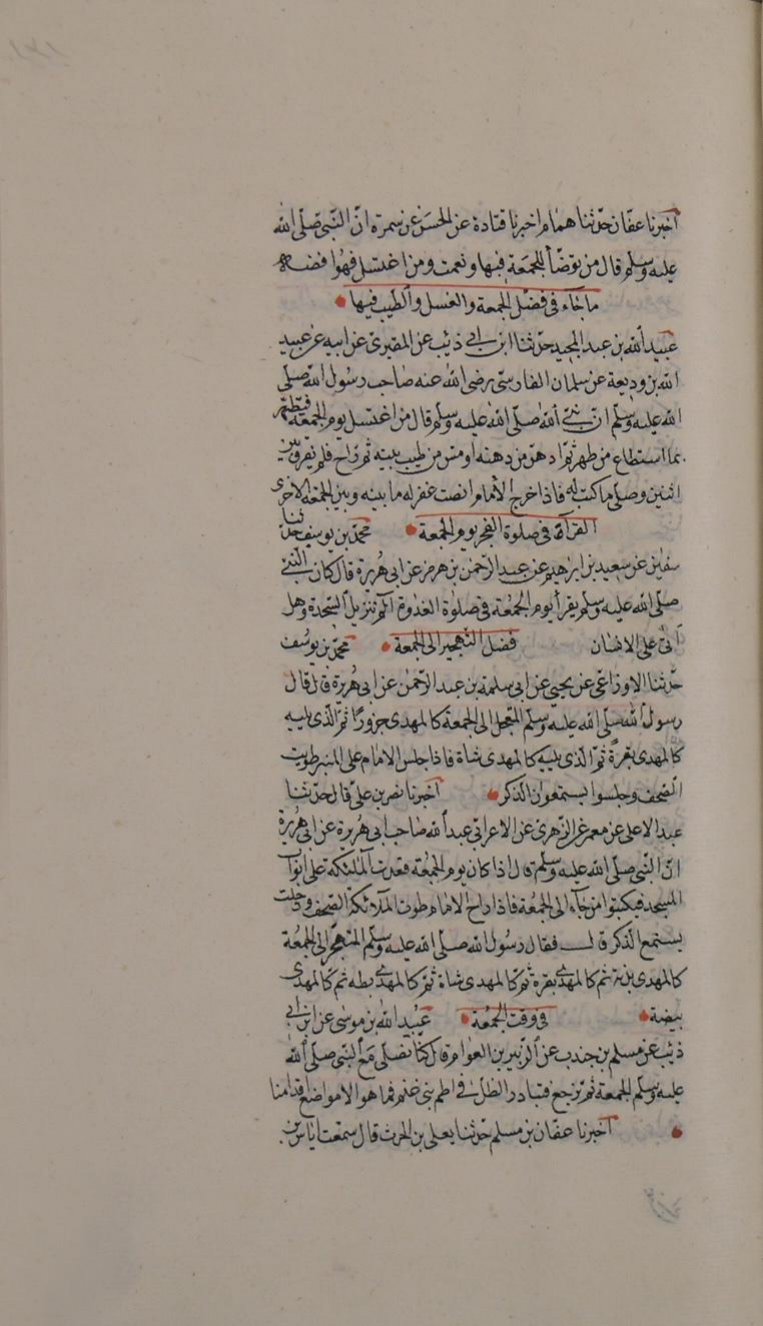 أخبرنا عفّان حدّثنا همّام اخبرنا قتادة عن الحسن عن سمرة انّ النّبى صلّى الله
عليه وسلّم قال من توضّأ للجمعة فبها ونعمت ومن اغتسل فهوا فضل
ما جاء فى فضل الجمعة والغسل والطيب فيها
عبيد الله بن عبد المجيد حدّثنا ابن ابى ذئب عن المقبرى عن ابيه عن عبيد
الله بن وديعة عن سلمان الفارسىّ رضى الله عنه صاحب رسول الله صلّى
الله عليه وسلّم انّ نبىّ الله صلّى الله عليه وسلّم قال من اغتسل يوم الجمعة فتطهّر
بما استطاع من طهر ثمّ ادهن من دهنه او مسّ من طيب بيته ثمّ راح فلم يفرق بين
اثنين وصلّى ما كتب له فاذا خرج الأمام انصت غفر له ما بينه وبين الجمعة الاخرى
القراءة فى صلوة الفجر يوم الجمعة محمّد بن يوسف حدّثنا
سفين عن سعيد بن ابرهيم عن عبد الرّحمن بن هرمز عن ابى هُريرة قال كان النّبىّ
صلّى الله عليه وسلّم يقرأ يوم الجمُعة فى صلوٰة الغدوة الٓمٓ تنزيل السّجدة وهل
أتى على الانسان فضل التّهجير الى الجمعة محمّد بن يوسُف
حدّثنا الاوزاعى عن يحيى عن ابى سلمة بن عبد الرّحمن عن ابى هُريرة قال قال
رسول الله صلّى الله عليه وسلّم المتعجل الى الجمعة كالمهدى جزورًا ثمّ الّذى يليه
كالمهدى بقرةً ثمّ الّذى يليه كالمهدى شاة فاذا جلس الامام على المنبر طويت
الصّحف وجلسوا يستمعون الذّكر أخبرنا نصر بن علىّ قال حدّثنا
عبد الاعلى عن معمر عن الزّهرى عن الاغر ابى عبد الله صاحب ابى هُريرة عن ابى هُريرة
انّ النّبى صلّى الله عليه وسلّم قال اذا كان يوم الجمُعة قعدت الملئكة على ابواب
المسجد فيكتبوا من جاء الى الجمُعة فاذا راح الامام طوت الملائكة الصّحف ودخلت
يستمع الذّكر قال فقال رسُول الله صلّى الله عليه وسلّم المتهجّر الى الجمُعة
كالمهدى بدنة ثم كالمهدى بقرة ثمّ كالمهدى شاة ثمّ كالمهدى بطه ثم كالمهدى
بيضة فى وقت الجمُعة عبيد الله بن موسى عن ابن ابى
ذئب عن مسلم بن جندب عن الزّبير بن العوام قال كنّا نصلّى مع النّبى صلّى الله
عليه وسلّم الجمعة ثمّ نرجع فنبادر الظلّ فى اطم بنى غنم فما هو الا مواضع اقدامنا
أخبرنا عفّان بن مسلم حدّثنا يعلى بن الحرث قال سمعت اياس بن